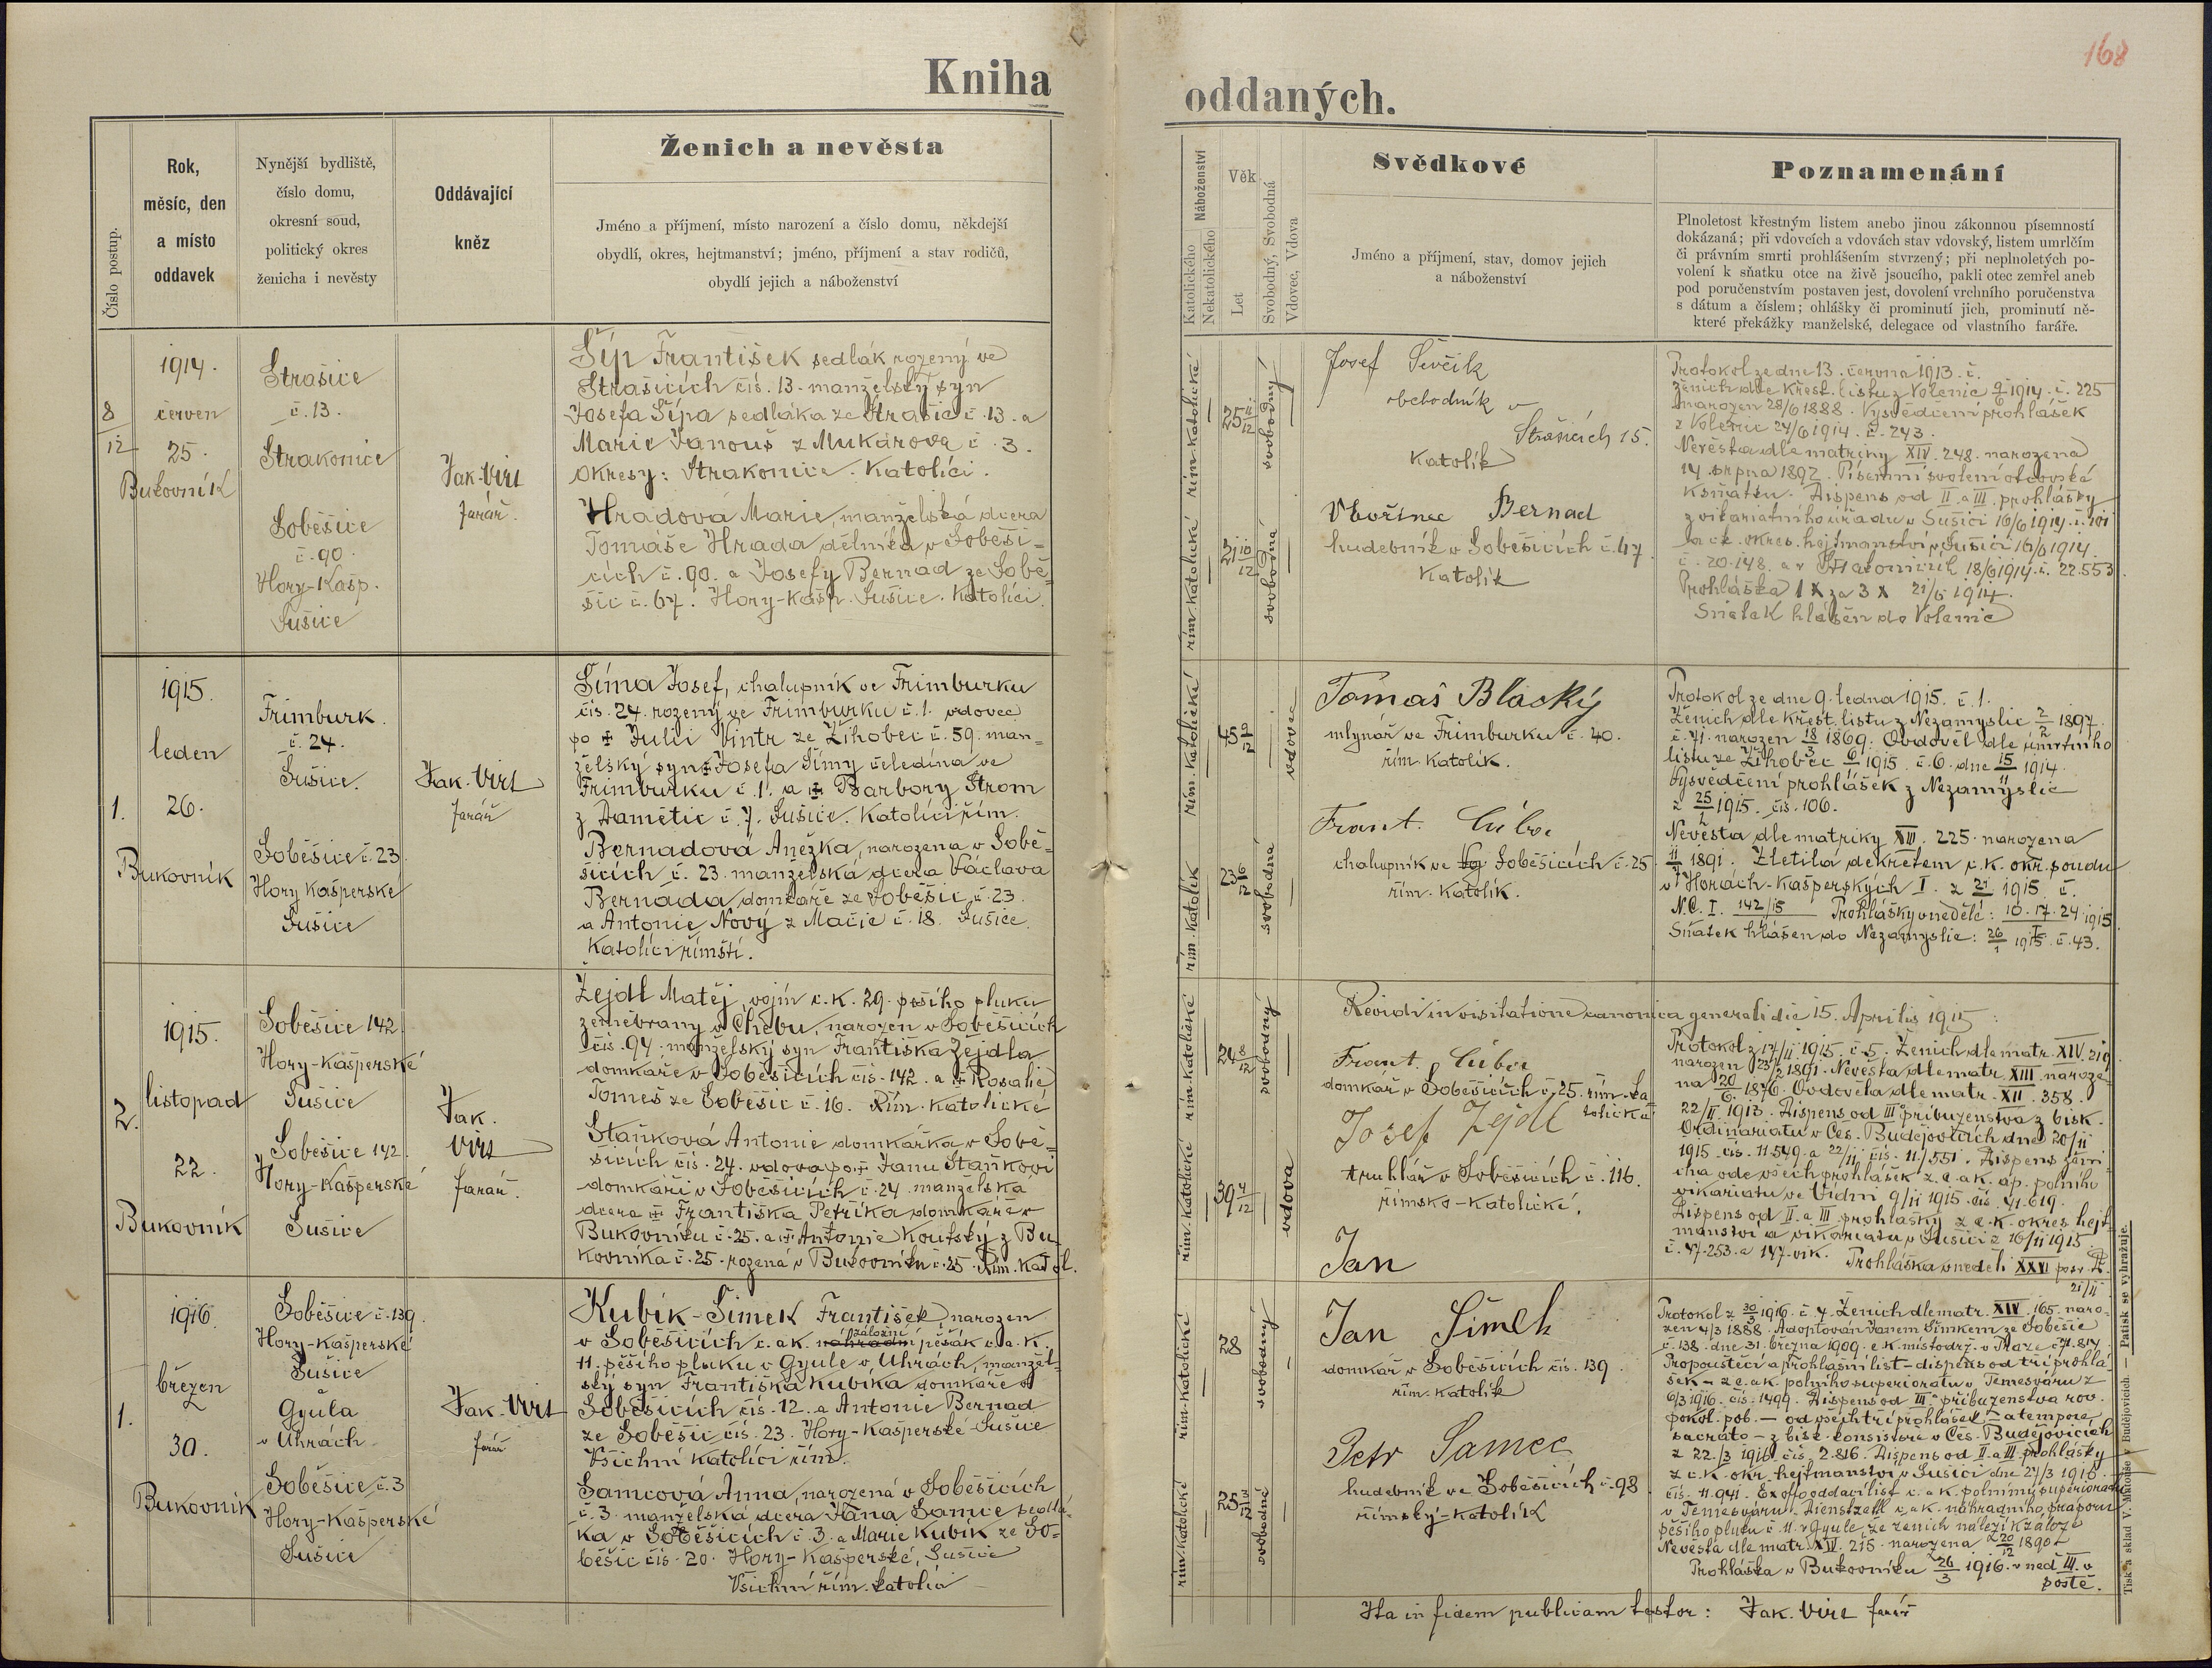 168
Kniha oddaných.
Číslo postup.
Rok,
měsíc, den
a místo
oddavek
Nynější bydliště,
číslo domu,
okresní soud,
politický okres
ženicha i nevěsty
Oddávající
kněz
Ženich a nevěsta
Jméno a příjmení, místo narození a číslo domu, někdejší
obydlí, okres, hejtmanství; jméno, příjmení a stav rodičů,
obydlí jejich a náboženství
Náboženství
Katolického
Nekatolického
Věk
Let
Svobodný, Svobodná
Vdovec, Vdova
Svědkové
Jméno a příjmení, stav, domov jejich
a náboženství
Poznamenání
Plnoletost křestným listem anebo jinou zákonnou písemností
dokázaná; při vdovcích a vdovách stav vdovský, listem umrlčím
či právním smrti prohlášením stvrzený; při neplnoletých po-
volení k sňatku otce na živě jsoucího, pakli otec zemřel aneb
pod poručenstvím postaven jest, dovolení vrchního poručenstva
s dátum a číslem; ohlášky či prominutí jich, prominutí ně-
které překážky manželské, delegace od vlastního faráře.
8
12
1914.
červen
25.
Bukovník
Strašice
č. 13.
Strakonice
Soběšice
č. 90.
Hory-Kašp.
Sušice
Jak. Virt
farář.
Šíp František sedlák rozený ve
Strašicích čís. 13. manželský syn
Josefa Šípa sedláka ze Strašic č. 13. a
Marie Janouš z Mukařova č. 3.
Okresy: Strakonice. Katolíci.
Hradová Marie, manželská dcera
Tomáše Hrada dělníka v Soběši-
cích č. 90. a Josefy Bernad ze Sobě-
šic č. 67. Hory-Kašp. Sušice. Katolíci.
řím. katolické
25 11/12
svobodný
řím. katolické
21 10/12
svobodná
Josef Ševčík
obchodník v
Strašicích 15.
Katolík
Vavřinec Bernad
hudebník v Soběšicích č. 47.
Katolík
Protokol ze dne 13. června 1913. č.
Ženich dle křest. listu z Volenic 9/6 1914. č. 225
narozen 28/6 1888. Vysvědčení prohlášek
z Volenic 24/6 1914. č. 243.
Nevěsta dle matriky XIV. 248. narozena
14. srpna 1892. Písemní svolení otcovské
k sňatku. Dispens od II. a III. prohlášky
z vikariatního úřadu v Sušici 16/6 1914. č. 101
la c.k. okres. hejtmanství v Sušici 16/6 1914.
č. 20.148. a v Strakonicích 18/6 1914. č. 22.553
Prohláška 1 X za 3 X 21/6 1914.
Sňatek hlášen do Volenic
1.
1915.
leden
26.
Bukovník
Frimburk.
č. 24.
Sušice.
Soběšice č. 23.
Hory Kašperské
Sušice
Jak. Virt
farář
Šíma Josef, chalupník ve Frimburku
čís. 24. rozený ve Frimburku č. 1. vdovec
po ✝ Julii Vintr ze Žihobec č. 59. man-
želský syn ✝ Josefa Šímy čeledína ve
Frimburku č. 1. a ✝ Barbory Strom
z Damětic č. 7. Sušice. Katolíci řím.
Bernadova Anežka, narozena v Sobě-
šicích č. 23. manželská dcera Václava
Bernada, domkáře ze Soběšic, č. 23.
a Antonie Nový z Mačic č. 18. Sušice.
Katolíci římští.
řím. katolické
45
vdovec
řím. katolík
23 6/12
svobodná
Tomaš Blacký
mlynář ve Frimburku č. 40.
řím. katolík.
Frant. Cuber
chalupník ve Soběšicích č. 25
řím. katolík.
Protokol ze dne 9. ledna 1915. č. 1.
Ženich dle křest. listu z Nezamyslic 2/2 1897.
č. 71. narozen 18/3 1869. Ovdověl dle úmrtního
listu ze Žihobec 6/1 1915. č. 6. dne 15/11 1914.
Vysvědčení prohlášek z Nezamyslic
z 25/1 1915. čís. 106.
Nevěsta dle matriky XIII. 225. narozena
11/7 1891. Zletilá dekretem c. k. okr. soudu
v Horách-Kašperských I. z 21/1 1915. č.
N.C. I. 142/15 Prohlášky v neděle: 10. 17. 24. 1915
Sňatek hlášen do Nezamyslic: 26/1 1915. č. 43.
2.
1915.
listopad
22.
Bukovník
Soběšice 142
Hory-Kašperské
Sušice
Soběšice 142.
Hory-Kašperské
Sušice
Jak.
Virt
farář.
Žejdl Matěj, vojín c. K. 29. pěšího pluku
zeměbrany v Chebu, narozen v Soběšicích
čís. 94. manželský syn Františka Žejdla
domkáře v Soběšicích čís. 142. a ✝ Rosalie
Tomeš ze Soběšic č. 16. Řím. Katolické
Staňková Antonie domkářka v Sobě-
šicích čís. 24. vdova po ✝ Janu Staňkovi
domkáři v Soběšicích č. 24. manželská
dcera ✝ Františka Petříka domkáře v
Bukovníku č. 25. a ✝ Antonie Koutský z Bu-
kovníka č. 25. rozená v Bukovníku č. 25. Řím. Katol.
řím. katolické
24 8/12
svobodný
řím. katolické
39 4/12
vdova
Revidi in visitatione canonica generali die 15. Aprilis 1915:
Frant. Cuber
domkář v Soběšicích č. 25. řím. ka-
tolické
Josef Zejdl
truhlář v Soběšicích č. 116.
římsko-katolické.
Jan
Protokol z 17/11 1915. č. 5. Ženich dle matr. XIV. 219
narozen 23/2 1891. Nevěsta dle matr. XIII. naroze-
na 20/6 1876. Ovdověla dle matr. XII. 358.
22/II. 1913. Dispens od III° příbuzenstva z bisk.
Ordinariatu v Čes. Budějovicích dne 20/11
1915. čís. 11.549. a 22/11 čís. 11.551. Dispens ženi-
cha ode všech prohlášek z c. a k. ap. polního
vikariatu ve Vídni 9/11 1915. čís. 41.619.
Dispens od II. a III. prohlášky z c.k. okres. hejt-
manství a vikariatu v Sušici z 16/11 1915.
č. 47.253. a 147. vik. Prohláška v neděli XXVI po sv. D.
21/11
1.
1916.
březen
30.
Bukovník
Soběšice č. 139.
Hory-Kašperské
Sušice
Z
Gyula
v Uhrách
Soběšice č. 3
Hory-Kašperské
Sušice
Jak. Virt
farář
Kubík-Šimek František narozen
v Soběšicích c. a k. náhradní záložní pěšák c. a. K.
11. pěšího pluku v Gyule v Uhrách, manžel-
ský syn Františka Kubíka domkáře v
Soběšicích čís. 12. a Antonie Bernad
ze Soběšic čís. 23. Hory-Kašperské Sušice
Všichni katolíci řím.
Samcová Anna, narozená v Soběšicích
č. 3. manželská dcera Jana Samce sedlá-
ka v Soběšicích č. 3. a Marie Kubík ze So-
běšic čís. 20. Hory-Kašperské, Sušice
Všichni řím. katolíci
řím. katolické
28
svobodný
řím. katolické
25 3/12
svobodné
Jan Šimek
domkář v Soběšicích čís. 139.
řím. katolík
Petr Samec
hudebník ve Soběšicích č. 98
římský-katolík
Protokol z 30/3 1916. č. 7. Ženich dle matr. XIV. 165. naro-
zen 4/3 1888. Adoptován Janem Šimkem ze Soběšic
č. 138. dne 31. března 1909. c. k. místodrž. v Praze č. 71.817
Propouštěcí a prohlašní list - dispens od tří prohlá-
šek - z c. a k. polního superioratu v Temesváru z
6/3 1916. čís. 1499. Dispens od III° příbuzenstva rov.
pokol. pob. - od všech tří prohlášek - a tempore
sacrato - z bisk. konsistoře v Čes. Budějovicích
z 22./3 1916. čís. 2.816. Dispens od II. a III. prohlášky
z c. K. okr. hejtmanství v Sušici dne 27/3 1916.
čís. 11.941. Ex offo oddací list c. a k. polnímu superioratu
v Temesváru. Dienstzettl c. a k. náhradního praporu
pěšího pluku č. 11. v Gyule, že ženich náleží k záloze
Nevěsta dle matr. XIV. 215. narozena 20/12 1890
Prohláška v Bukovníku 26/3 1916. v neď. III. v
postě.
Ita in fidem publicam testor: Jak. Virt farář
Tisk a sklad V. Mikouše v Budějovicích. — Patisk se vyhražuje.